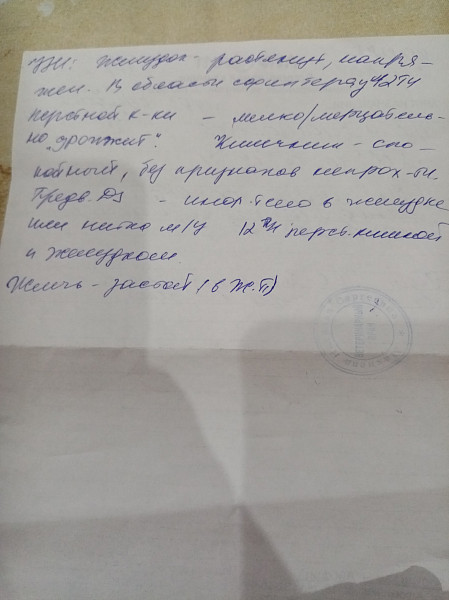 УЗИ: Желудок - растянут, напря-
жен. В области сфинктера у 12ти
перстной к-ки - мелко/мерцатель-
но "дрожит". Кишечник - спо-
койный, без признаков непрох-ти.
Предв. Ds - инор. тело в желудке
или нитка м/у 12ти перств. кишкой
и желудком
Желчь - застой (в Ж.П)